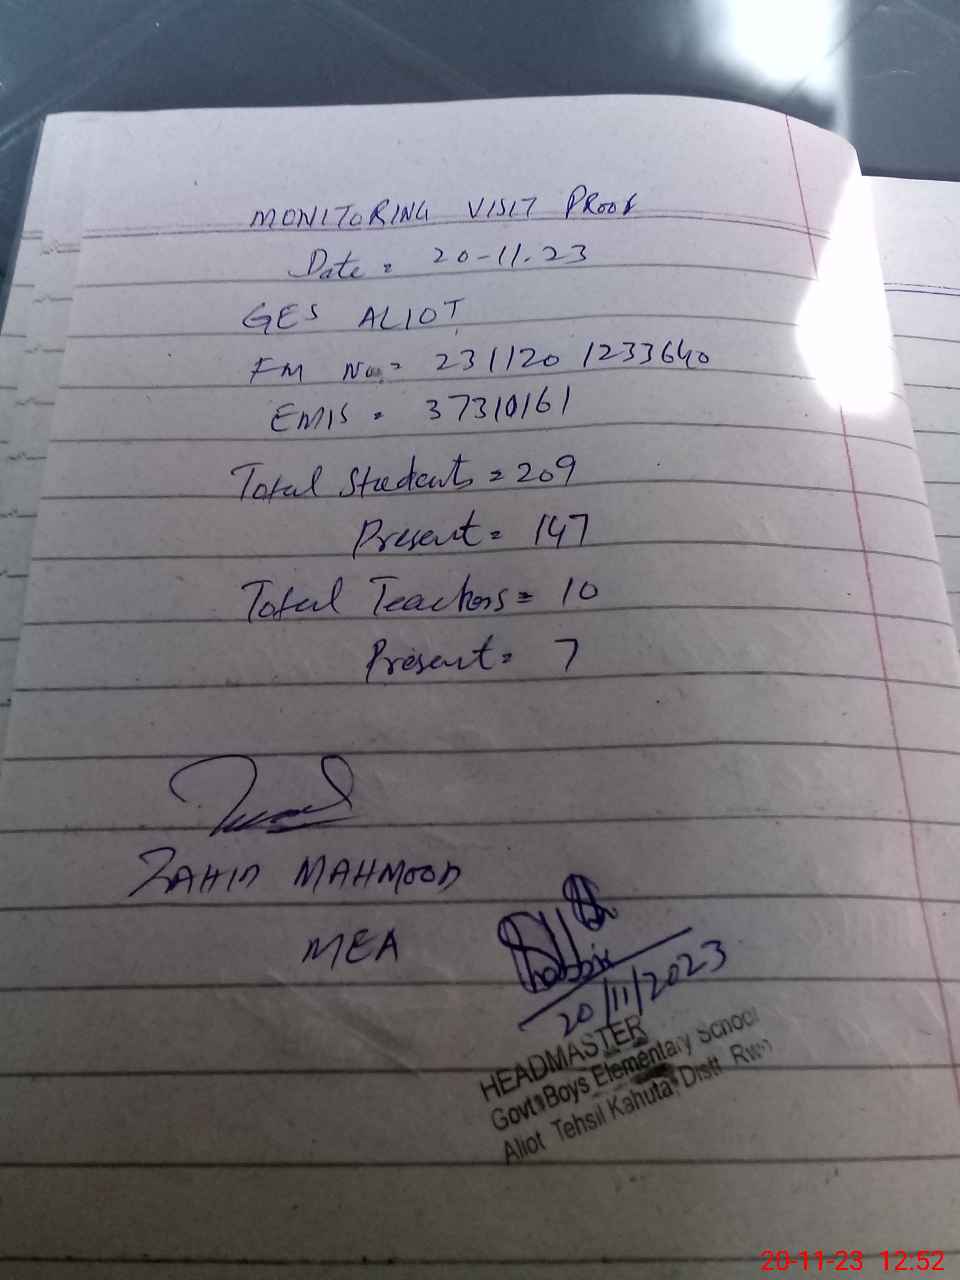 MONITORING VISIT PROOF
Date = 20-11.23
GES ALIOT
FM No = 231120 1233640
EMIS = 37310161
Total Students = 209
Present = 147
Total Teachers = 10
Present = 7
ZAHID MAHMOOD
MEA
20/11/2023
HEADMASTER
Govt Boys Elementary School
Aliot Tehsil Kahuta Distt Rwp
20-11-23 12:52